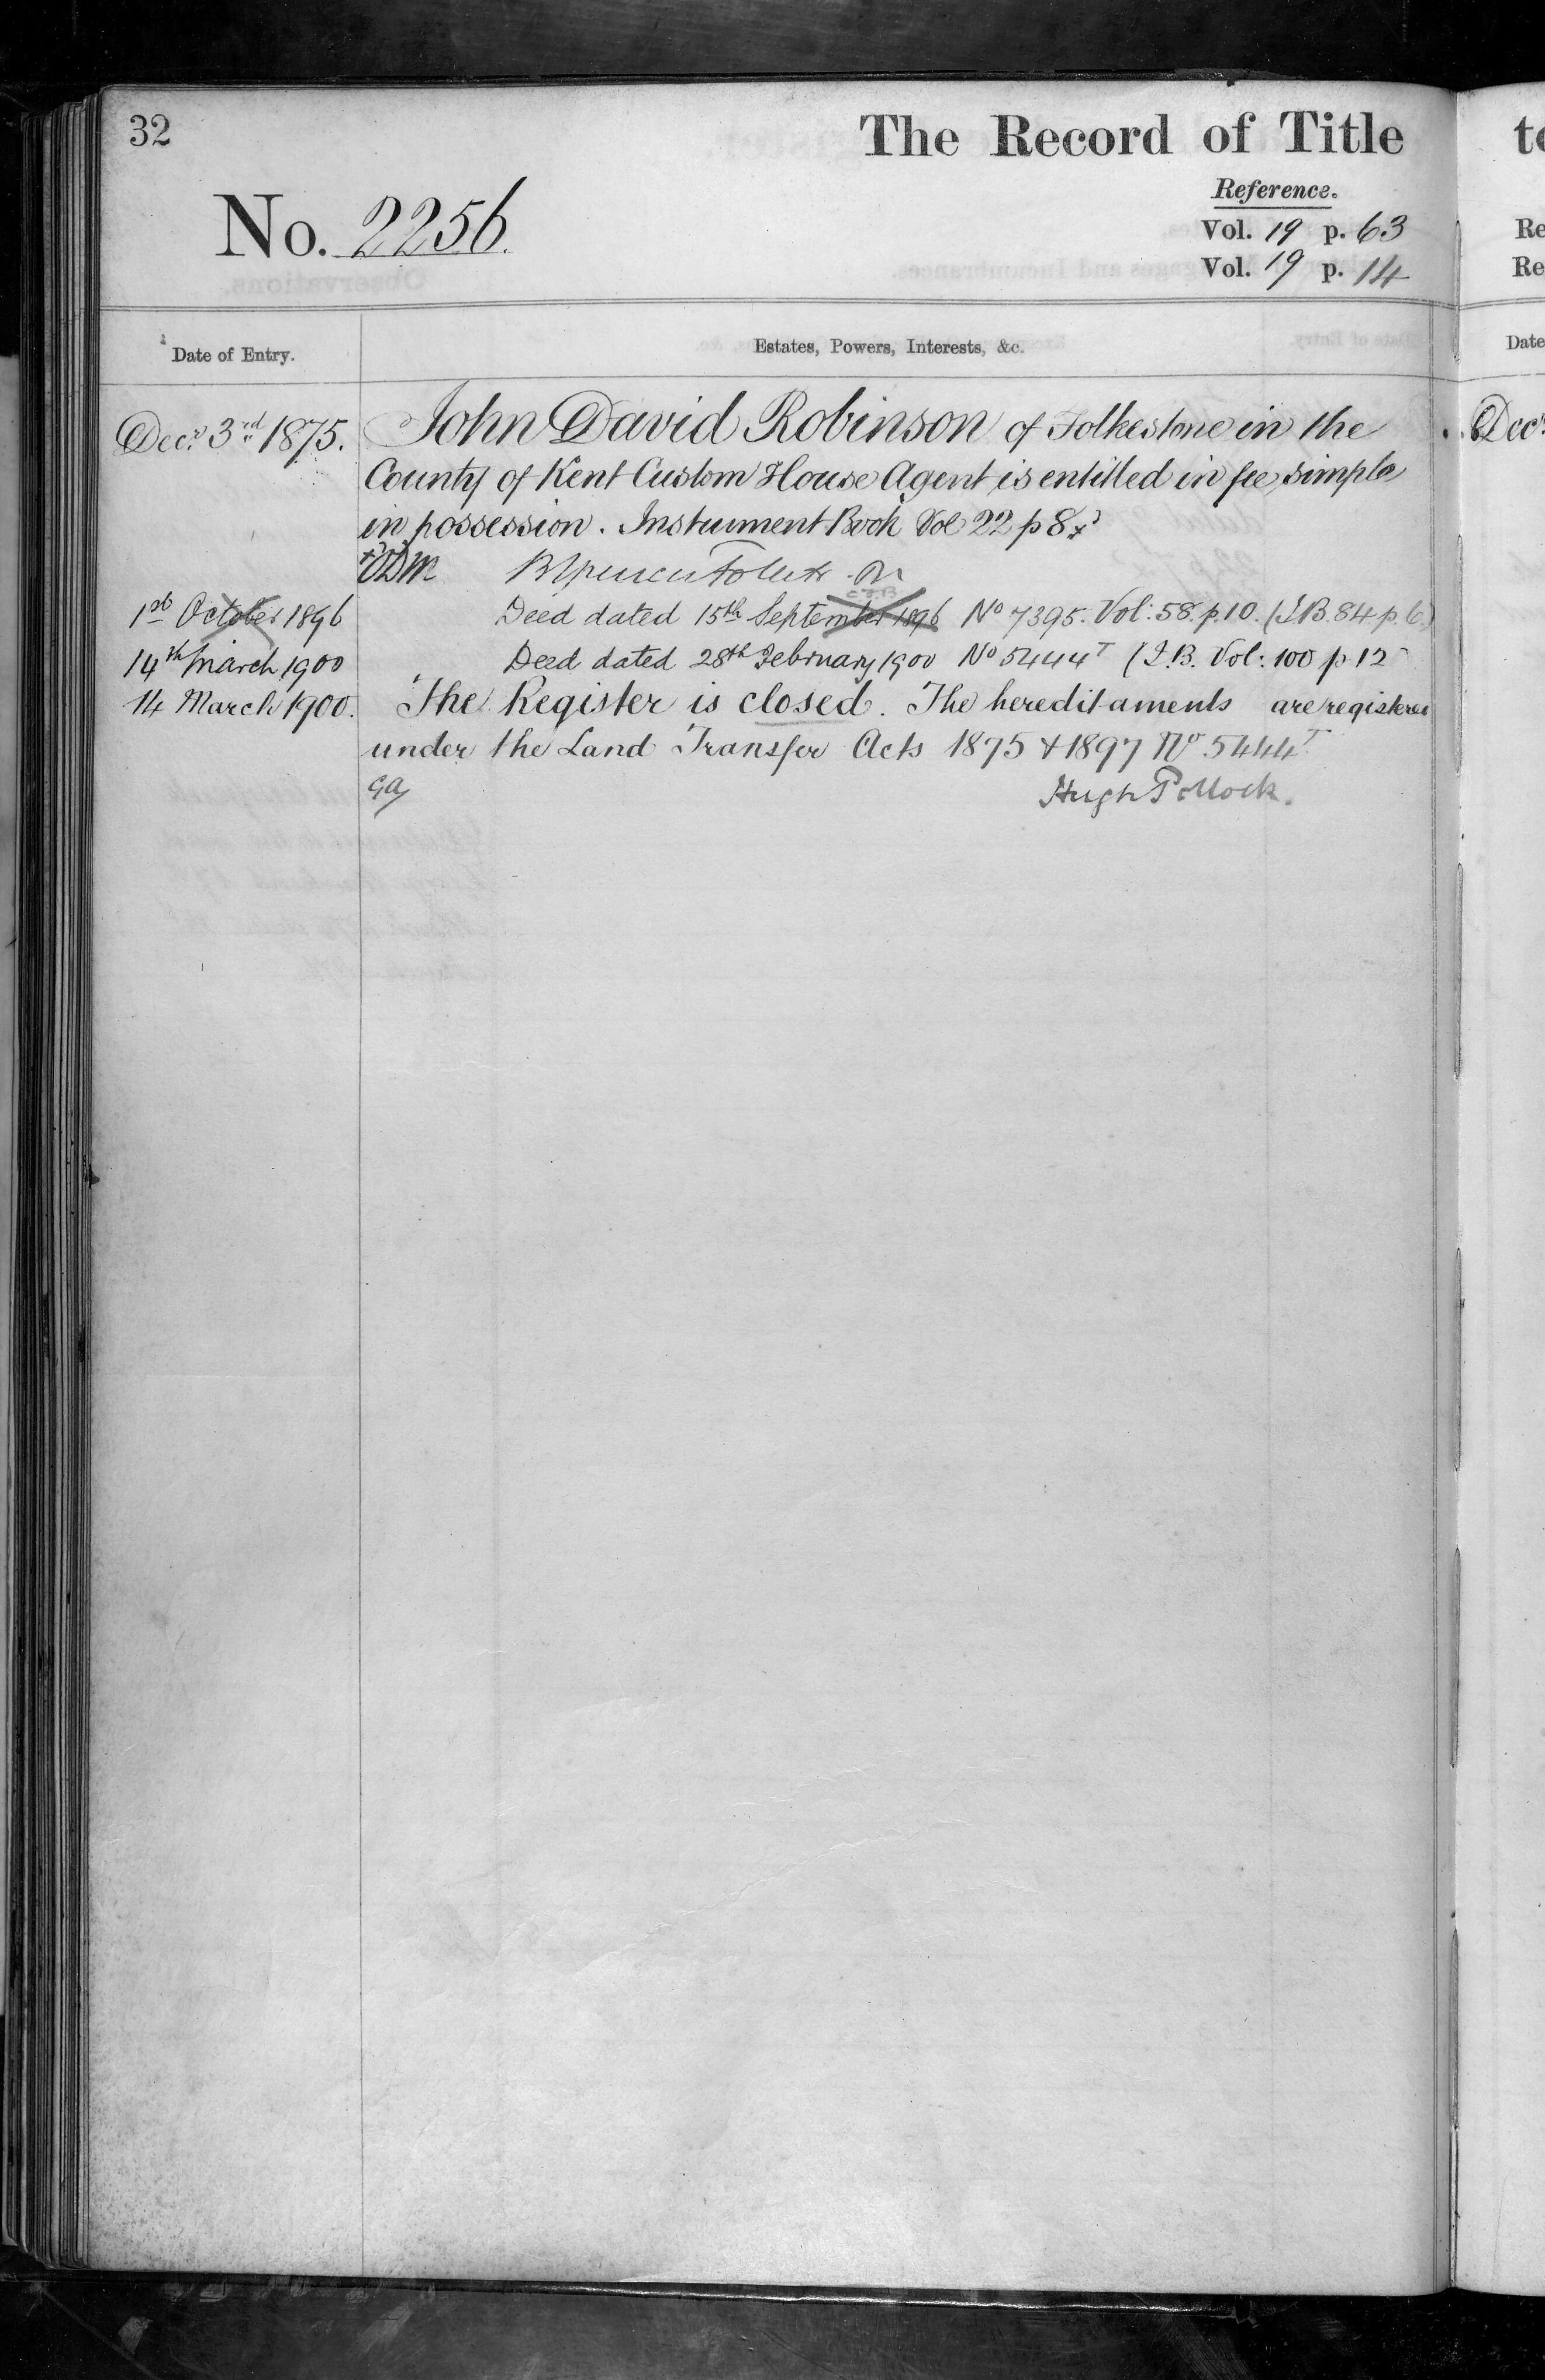 32
The Record of Title
No. 2256.
Reference.
Vol. 19 p. 63
Vol. 19 p. 14
Date of Entry.
Estates, Powers, Interests, &c.
Decr. 3rd 1875.
John David Robinson of Folkestone in the
County of Kent Custom House Agent is entitled in fee simple
in possession. Instrument Book Vol 22 p 8
1st October 1896
Deed dated 15th September 1896 No 7395. Vol: 58. p. 10. (I.B. 84 p. 6)
14th March 1900
Deed dated 28th February 1900 No 5444T (I.B. Vol: 100 p 12
14 March 1900.
The Register is closed. The hereditaments are registered
under the Land Transfer Acts 1875 & 1897 No 5444T
Hugh Pollock.
to
Re
Re
Date
Decr.